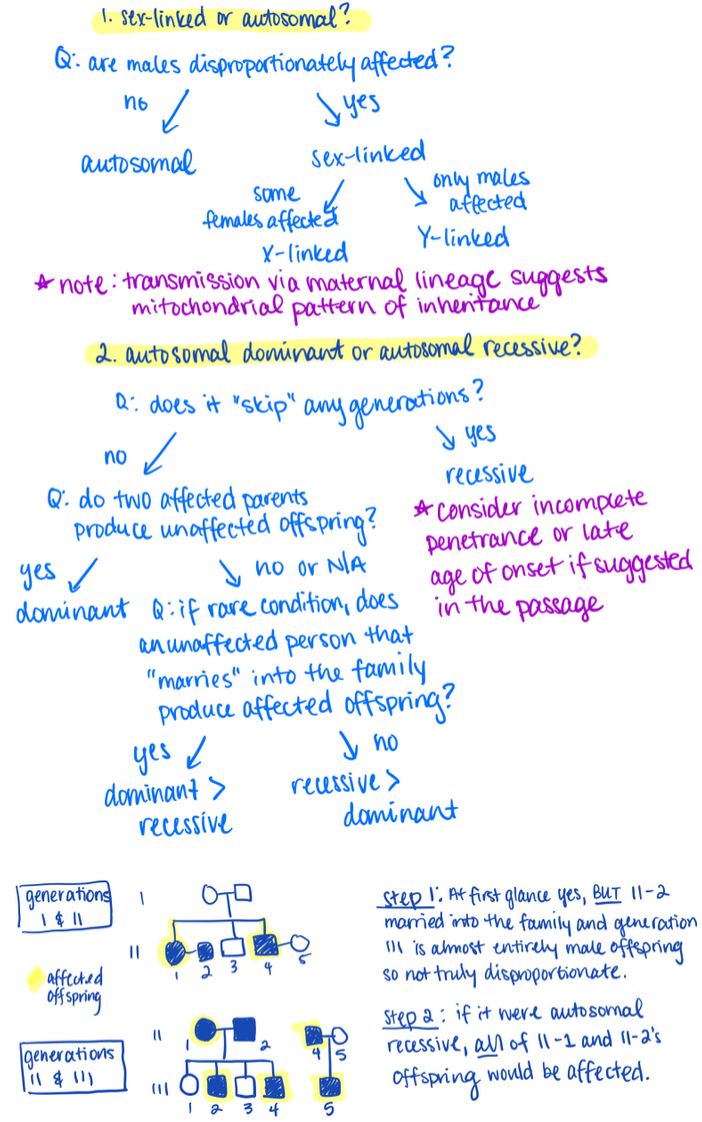 1. sex-linked or autosomal?
Q: are males disproportionately affected?
no
yes
autosomal
sex-linked
some
females affected
X-linked
only males
affected
Y-linked
* note: transmission via maternal lineage suggests
mitochondrial pattern of inheritance
2. autosomal dominant or autosomal recessive?
Q: does it "skip" any generations?
no
yes
recessive
* consider incomplete
penetrance or late
age of onset if suggested
in the passage
Q: do two affected parents
produce unaffected offspring?
yes
dominant
no or N/A
Q: if rare condition, does
an unaffected person that
"marries" into the family
produce affected offspring?
yes
dominant >
recessive
no
recessive >
dominant
generations
I & II
I
II
1
2
3
4
5
affected
offspring
generations
II & III
II
1
2
4
5
III
1
2
3
4
5
Step 1: At first glance yes, BUT II-2
married into the family and generation
III is almost entirely male offspring
so not truly disproportionate.
Step 2: if it were autosomal
recessive, all of II-1 and II-2's
offspring would be affected.